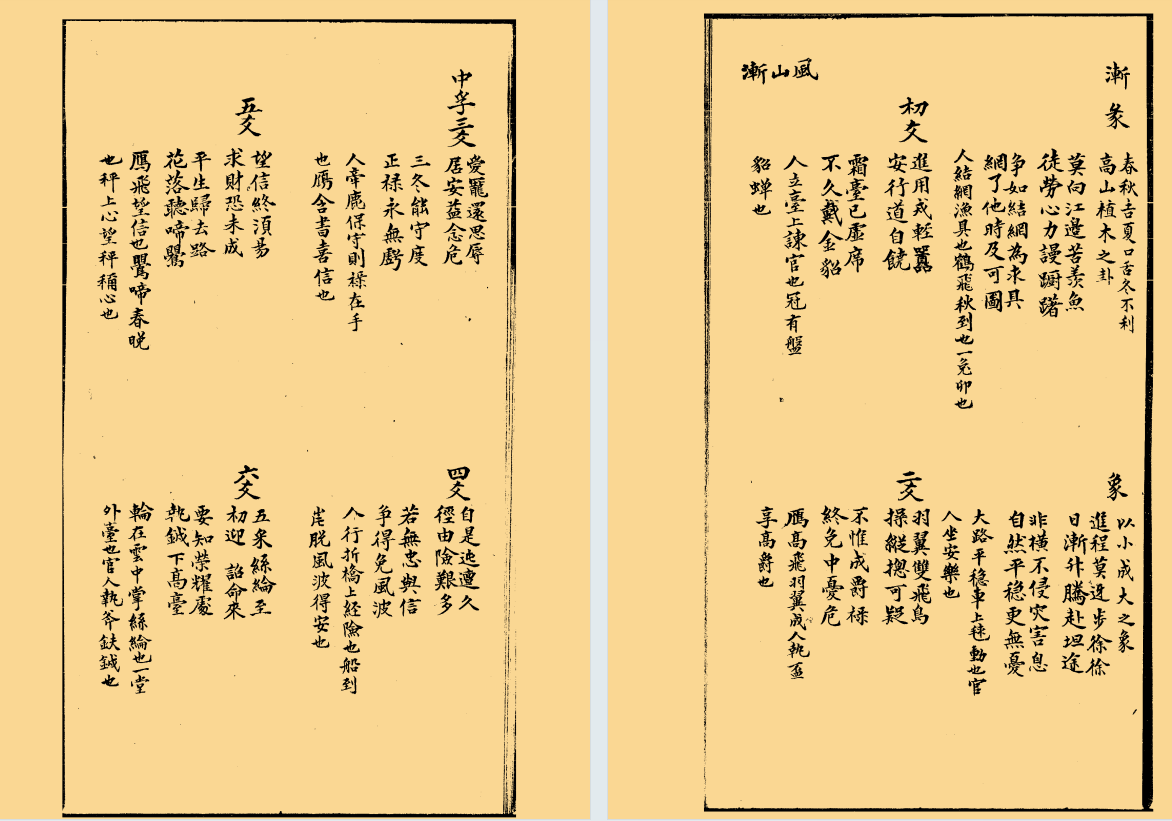 漸
彖
春秋吉夏口舌冬不利
高山植木之卦
莫向江邊苦羨魚
徒勞心力謾蹰躇
爭如結網為求具
網了他時及可圖
人結網漁具也鶴飛秋到也一兔卯也
初爻
進用或輕囂
安行道自饒
霜臺已虛席
不久戴金貂
人立臺上諫官也冠有盤
貂蟬也
風山漸
象
以小成大之象
進程莫迓步徐徐
日漸升騰赴坦途
非橫不侵灾害息
自然平穩更無憂
大路平穩車上毬動也官
人坐安樂也
二爻
羽翼雙飛鳥
操縱摠可疑
不惟成爵祿
終免中憂危
鴈高飛羽翼成人執盃
享高爵也
中孚三爻
愛寵還思辱
居安益念危
三冬能守度
正祿永無虧
人牽鹿保守則祿在手
也鴈含書喜信也
五爻
望信終須易
求財恐未成
平生歸去路
花落聽啼鸎
鴈飛望信也鸎啼春晚
也秤上心望秤稱心也
四爻
自是迍邅久
徑由險艱多
若無忠與信
爭得免風波
人行折橋上經險也船到
岸脫風波得安也
六爻
五朵絲綸至
初迎 詔命來
要知榮耀處
執鉞下高臺
輪在雲中掌絲綸也一堂
外臺也官人執斧鈇鉞也